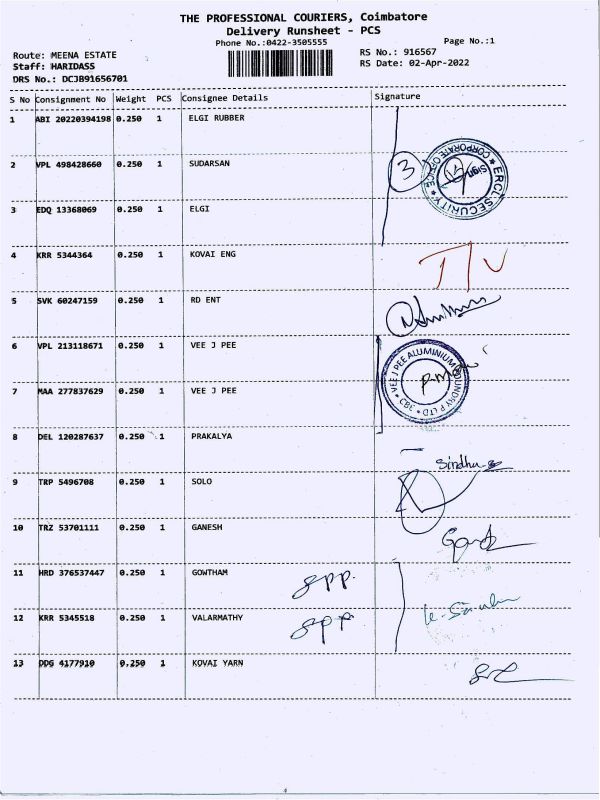 THE PROFESSIONAL COURIERS, Coimbatore
Delivery Runsheet - PCS
Phone No.:0422-3505555
Page No.:1
Route: MEENA ESTATE
Staff: HARIDASS
DRS No.: DCJB91656701
RS No.: 916567
RS Date: 02-Apr-2022
S No Consignment No Weight PCS Consignee Details Signature
1 ABI 20220394198 0.250 1 ELGI RUBBER
2 VPL 498428660 0.250 1 SUDARSAN
3
ERCL SECURITY
CORPORATE OFFICE
Sign
3 EDQ 13368069 0.250 1 ELGI
4 KRR 5344364 0.250 1 KOVAI ENG
5 SVK 60247159 0.250 1 RD ENT
6 VPL 213118671 0.250 1 VEE J PEE
VEE J PEE ALUMINIUM FOUNDRY P LTD
CBE
7 MAA 277837629 0.250 1 VEE J PEE
8 DEL 120287637 0.250 1 PRAKALYA
Sindhu
9 TRP 5496708 0.250 1 SOLO
10 TRZ 53701111 0.250 1 GANESH
11 HRD 376537447 0.250 1 GOWTHAM
12 KRR 5345518 0.250 1 VALARMATHY
13 DDG 4177910 0.250 1 KOVAI YARN